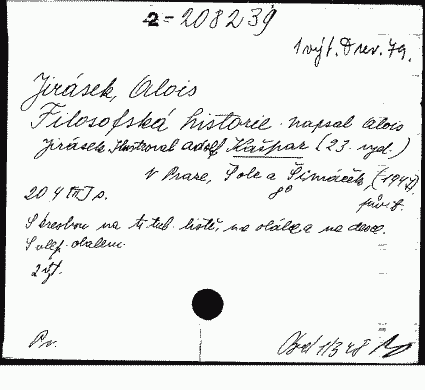 2-208239
1 výt. Drev. 79.
Jirásek, Alois
Filosofská historie. napsal Alois
Jirásek. Ilustroval Adolf Kašpar (23. vyd.)
V Praze, Šolc a Šimáček, (1947)
8°
204 s.
S kresbou na titul. listě, na obálce a na desce.
S olep. obalem.
2 výt.
Pv.
1/3 48